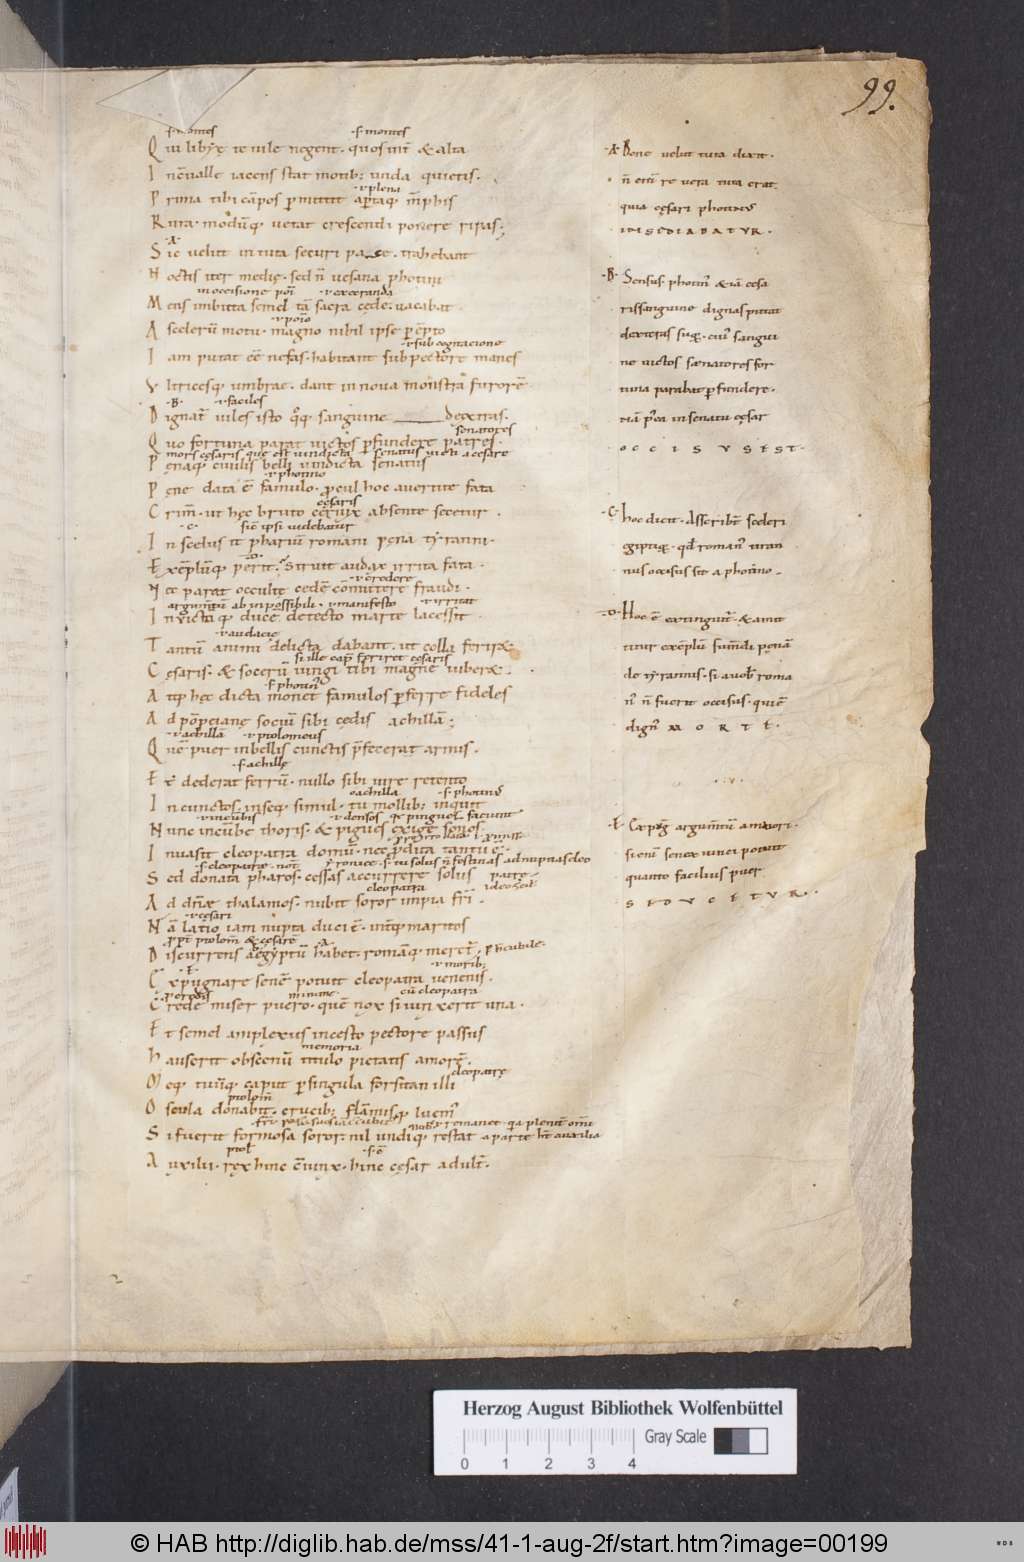 99.
.s. montes .s. montes
Q ui libyę te nile negent. quos int̄ & alta
I n cōualle iacens stat motib; unda quietis.
.i. plena
P rima tibi cāpos p̄mittit aptaq; m̄phis
R ura. modūq; uetat crescendi ponere ripas;
.A.
S ic uelut in tuta securi pace. trahebant
N octis iter medię. sed n̄ uesana photini
in occisione pōī .i. execranda
M ens imbuta semel tā sacra cęde. uacabat
.i. pōīo
A scelerū motu. magno nihil ipse pēpto
.i. sub cogitatione
I am putat eē nefas. habitant sub pectore manes
V ltricesq; umbrae. dant in noua monstra furorē.
.B. .i. faciles
D ignat᷑ uiles isto qq; sanguine dextras.
senatores
Q uo fortuna parat uictos p̄fundere patres.
mors cęsaris quę est uindicta senatus uicti a cesare
P ęnaq; ciuilis belli uindicta senatus
.i. photino
P ęne data ē famulo. procul hoc auertite fata
cęsaris
C rim̄. ut hęc bruto ceruix absente secetur.
.C. sic ipsi uidebatur
I n scelus it pharium romani pęna tyranni.
.D.
E xēplūq; perit. Struit audax irrita fata.
.i. credere
N ec parat occulte cedē cōmittere fraudi.
argumtū ab inpossibili. .i. manifesto .i. irritat
I nuictaq; ducē detecto marte lacessit.
.i. audacię
T antū animi delicta dabant. ut colla ferirę
si ille cap̄ feriret cęsaris
C ęsaris. & socerū iungi tibi magne iuberę.
.s. photin᷑
A tq; hęc dicta monet famulos p̄ferre fideles
A d pōpeianę sociū sibi cędis achillā;
.i. achillā .i. ptolomeus
Q uē puer inbellis cunctis p̄fecerat armis.
.s. achillę
E t dederat ferrū. nullo sibi iure retento
o achilla .s. photinus
I n cunctos inseq; simul. tu mollib; inquit
.i. incubis .i. densos qe pinguos faciunt
N unc incūbe thoris. & pigues exige sonos.
I nuasit cleopatra domū. nec p̄dita tantū ē.
.s. cleopatrę
S ed donata pharos. cessas accurrere solus
cleopatra
A d dn̄ę thalamos. nubit soror impia fr̄ī.
.i. cesari
N ā latio iam nupta duci ē. int̄q; maritos
pp̄t ptolom̄ & cęsarē .A.
D iscurrens aegyptū habet. romāq; meret᷑.
.E. .i. morib;
E xpugnare senē potuit cleopatra uenenis.
cū cleopatra
C rede miser puero. quē nox si iunxerit una.
E t semel amplexus incesto pectore passus
memoria
H auserit obscenū titulo pietatis amorē.
cleopatrę
M eq; tuūq; caput p̄ singula forsitan illi
ptolom̄
O scula donabit. crucib; flāmisq; luem᷑
S i fuerit formosa soror. nil undiq; restat
ptol̄ .s. ē
A uxilii. rex hinc cōiunx. hinc cęsar adult᷑.
.A. Bene uelut tuta dixit.
n̄ enī re uera tuta erat
quia cęsari photinus
INSEDIABATVR.
.B. Sensus photin᷑ & iā cesa
ris sanguine dignas putat
dexteras suas. cui᷑ sangui
ne uictos sænatores for
tuna parabat p̄fundere.
nā p̄ea in senatu cęsar
OCCISVS EST.
.C. hoc dicit. Asscribet᷑ sceleri
egiptię. qd̄ roman᷑ tiran
nus occisus sit a photino.
.D. Hoc ē extinguit᷑. & amit
titur exēplū sumdi penā
de tyrannis. si auob᷑ roma
n᷑ n̄ fuerit occisus. quiē
dign᷑ MORTE.
.E. Exp̄g argumtū a maiori.
si enī senex uinci potuit
quanto facilius puer
SEDVCETVR.
Herzog August Bibliothek Wolfenbüttel
Gray Scale
0 1 2 3 4
© HAB http://diglib.hab.de/mss/41-1-aug-2f/start.htm?image=00199